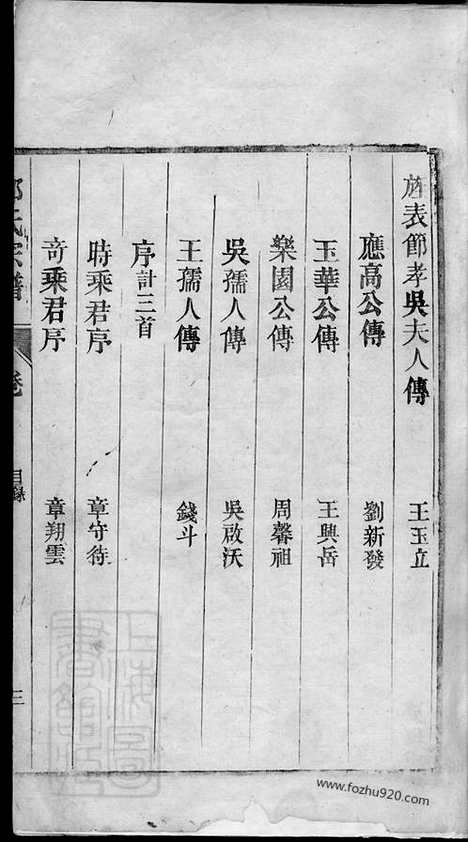 旌表節孝吳夫人傳 王玉立
應高公傳 劉新發
玉華公傳 王興岳
樂園公傳 周馨祖
吳孺人傳 吳啟沃
王孺人傳 錢斗
序計三首
時乘君序 章守待
奇乘君序 章翔雲
氏宗譜 卷 目錄 三
上海圖書館藏
www.fozhu920.com